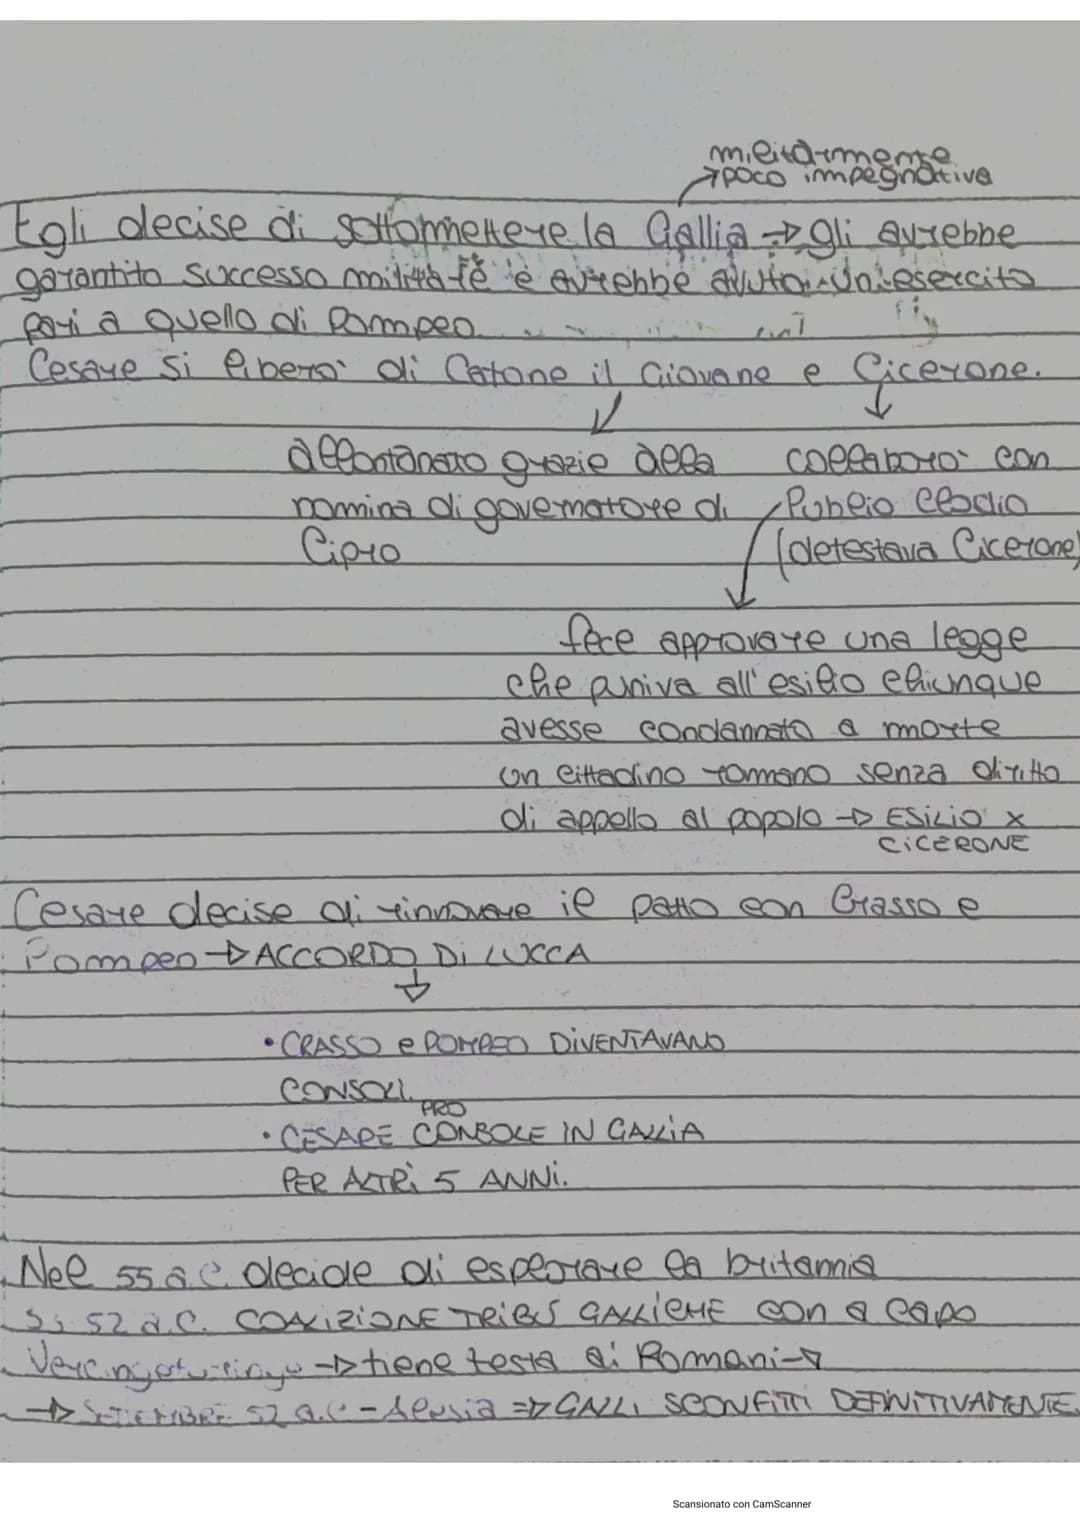 militarmente
poco impegnativa
Egli decise di sottomettere la Gallia → gli avrebbe
garantito successo militare e avrebbe avuto un esercito
pari a quello di Pompeo.
Cesare si liberò di Catone il Giovane e Cicerone.
allontanato grazie alla
nomina di governatore di
Cipro
collaborò con
Publio Clodio
(detestava Cicerone)
fece approvare una legge
che puniva all'esilio chiunque
avesse condannato a morte
un cittadino romano senza diritto
di appello al popolo → ESILIO X
CICERONE
Cesare decise di rinnovare il patto con Crasso e
Pompeo → ACCORDO DI LUCCA
• CRASSO e POMPEO DIVENTAVANO
CONSOLI.
PRO
• CESARE CONSOLE IN GALLIA
PER ALTRI 5 ANNI.
Nel 55 a.C. decide di esplorare la britannia
52 a.C. COALIZIONE TRIBÙ GALLICHE con a capo
Vercingetoringe → tiene testa ai Romani →
→ SETTEMBRE 52 a.C - Alesia ⇒ GALLI SCONFITTI DEFINITIVAMENTE.
Scansionato con CamScanner